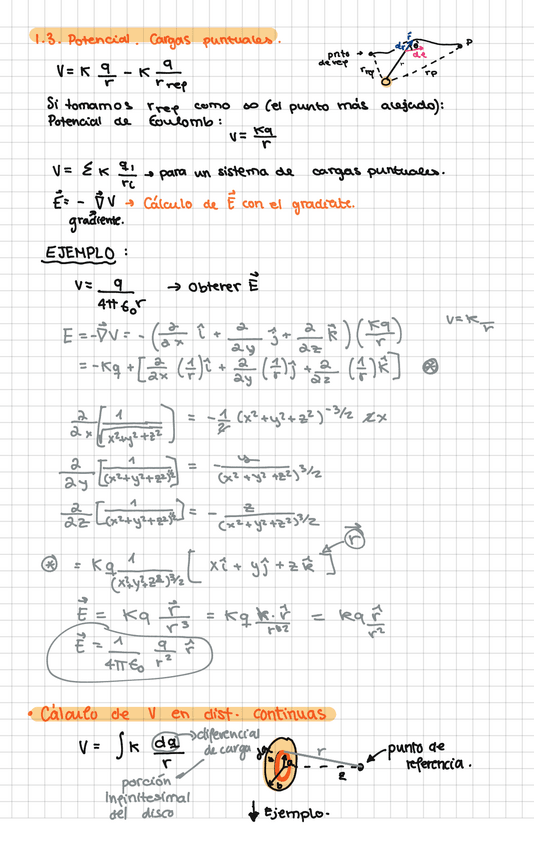 1.3. Potencial. Cargas puntuales.
V = K q/r - K q/r_rep
pnto de rep
r_rep
r̂
dr
dl
r
r_P
P
Si tomamos r_rep como ∞ (el punto más alejado):
Potencial de Coulomb:
V = Kq/r
V = Σ K q_i/r_i → para un sistema de cargas puntuales.
E⃗ = - ∇⃗V → Cálculo de E⃗ con el gradiate.
gradiente.
EJEMPLO :
V = q/4πε₀r → Obtener E⃗
E = -∇⃗V = - (∂/∂x î + ∂/∂y ĵ + ∂/∂z k̂) (Kq/r)
V = K /r
= -Kq + [∂/∂x (1/r) î + ∂/∂y (1/r) ĵ + ∂/∂z (1/r) k̂] ⊛
∂/∂x [1/√(x²+y²+z²)] = -1/2 (x²+y²+z²)^-3/2 2x
∂/∂y [1/(x²+y²+z²)^½] = - y/(x²+y²+z²)^3/2
∂/∂z [1/(x²+y²+z²)^½] = - z/(x²+y²+z²)^3/2
r⃗
⊛ = Kq 1/(x²+y²+z²)^3/2 [xî + yĵ + zk̂]
E⃗ = Kq r⃗/r³ = Kq r·r̂/r³² = Kq r̂/r²
E⃗ = 1/4πε₀ q/r² r̂
• Cálculo de V en dist. continuas
V = ∫ K dq/r
→ diferencial de carga
porción infinitesimal del disco
dq
a
b
r
z
punto de referencia.
↓ Ejemplo.